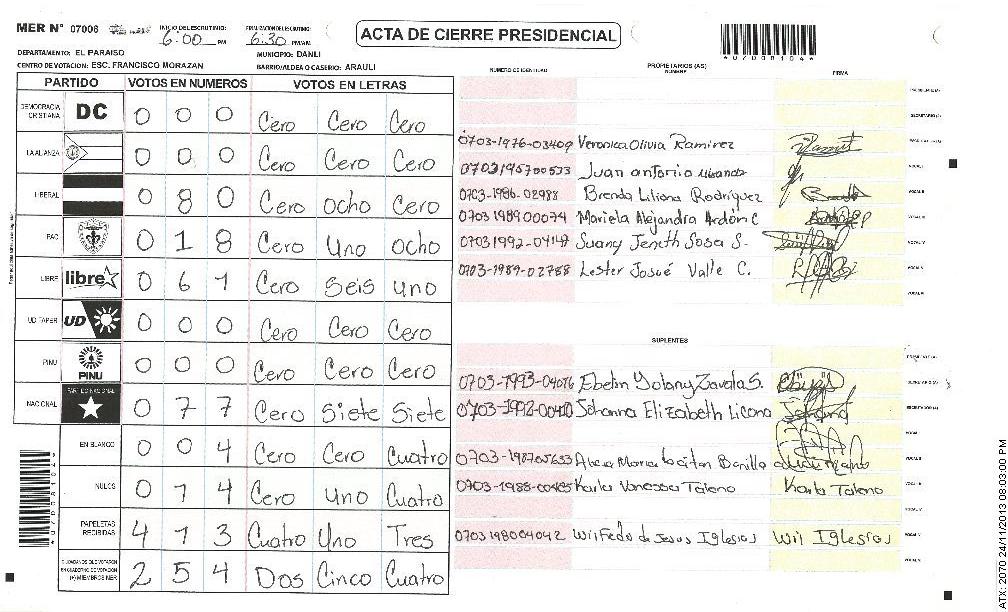 MER Nº 07006 INICIO DEL ESCRUTINIO: 6:00 PM FINALIZACION DEL ESCRUTINIO: 6:30 PM/AM
ACTA DE CIERRE PRESIDENCIAL
DEPARTAMENTO: EL PARAISO MUNICIPIO: DANLI
CENTRO DE VOTACION: ESC. FRANCISCO MORAZAN BARRIO/ALDEA O CASERIO: ARAULI
PARTIDO VOTOS EN NUMEROS VOTOS EN LETRAS
DEMOCRACIA CRISTIANA DC 0 0 0 Cero Cero Cero
LA ALIANZA 0 0 0 Cero Cero Cero
LIBERAL 0 8 0 Cero ocho Cero
PAC 0 1 8 Cero Uno ocho
LIBRE libre 0 6 1 Cero Seis uno
UD FAPER UD 0 0 0 Cero Cero Cero
PINU PINU 0 0 0 Cero Cero Cero
NACIONAL PARTIDO NACIONAL 0 7 7 Cero Siete Siete
EN BLANCO 0 0 4 Cero Cero Cuatro
NULOS 0 1 4 Cero uno Cuatro
PAPELETAS RECIBIDAS 4 1 3 Cuatro Uno Tres
CIUDADANOS QUE VOTARON EN CUADERNO DE VOTACION (+) MIEMBROS MER 2 5 4 Dos Cinco Cuatro
NUMERO DE IDENTIDAD PROPIETARIOS (AS) NOMBRE FIRMA
PRESIDENTE (A)
SECRETARIO (A)
0703-1976-03409 Veronica Olivia Ramirez
0703195700533 Juan antonio Miranda
0703-1986-02988 Brenda Liliana Rodríguez
0703198900074 Mariela Alejandra Ardón C
07031992-04147 Suany Jeneth Sosa S.
0703-1989-02788 Lester Josué Valle C.
SUPLENTES
0703-1993-04076 Ebelin Yolany Zavala S.
0703-1992-00410 Johanna Elizabeth Licona
0703-198705633 Maria Bonilla
0703-1988-00485 Karla Vanessa Taleno Karla Taleno
0703198004042 Wilfredo de Jesus Iglesias Wil Iglesias
*07008104*
ATX: 2070 24/11/2013 08:03:00 PM